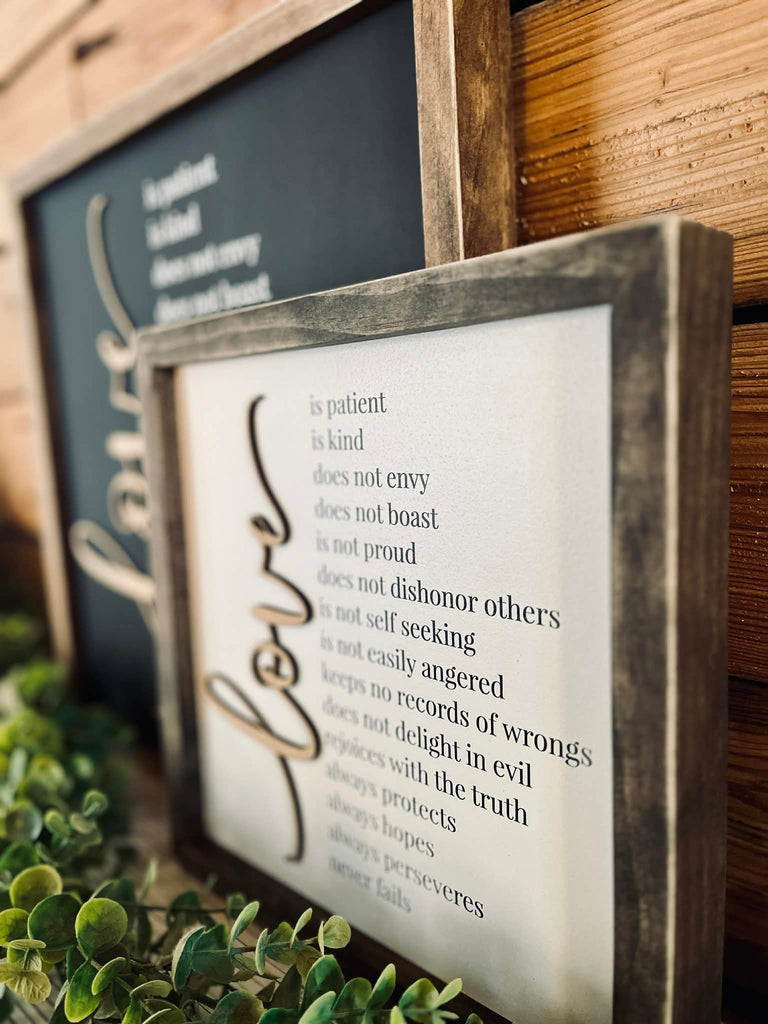 is patient
is kind
does not envy
does not boast
love
is patient
is kind
does not envy
does not boast
is not proud
does not dishonor others
is not self seeking
is not easily angered
keeps no records of wrongs
does not delight in evil
rejoices with the truth
always protects
always hopes
always perseveres
never fails
love